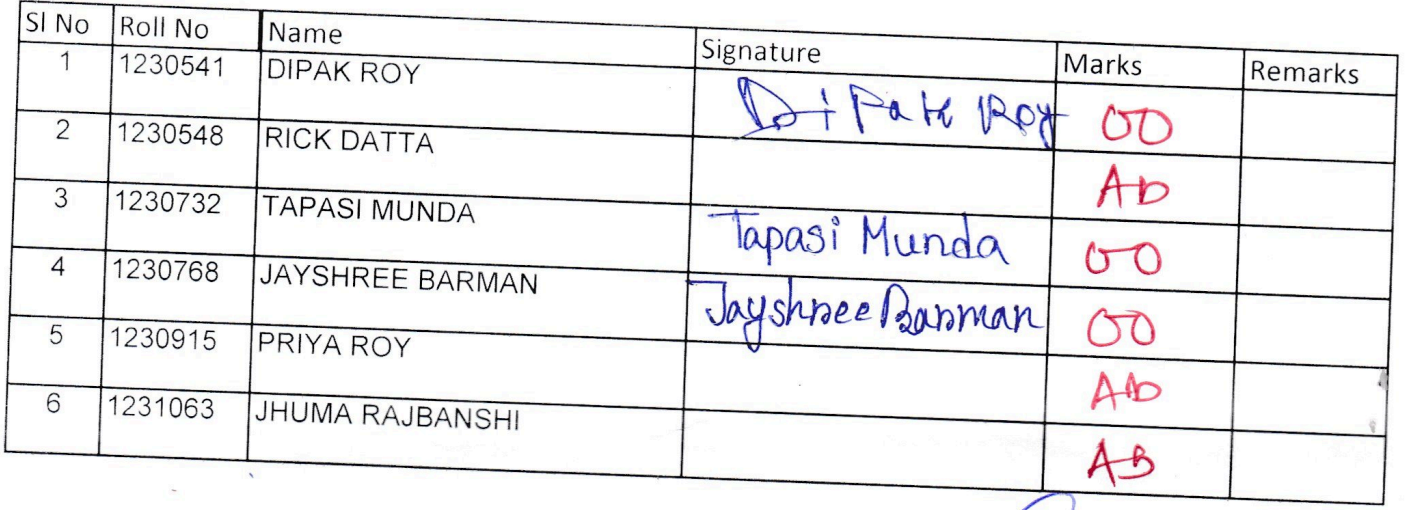 Sl No Roll No Name Signature Marks Remarks
1 1230541 DIPAK ROY Dipak Roy 00
2 1230548 RICK DATTA Ab
3 1230732 TAPASI MUNDA Tapasi Munda 00
4 1230768 JAYSHREE BARMAN Jayshree Barman 00
5 1230915 PRIYA ROY Ab
6 1231063 JHUMA RAJBANSHI AB